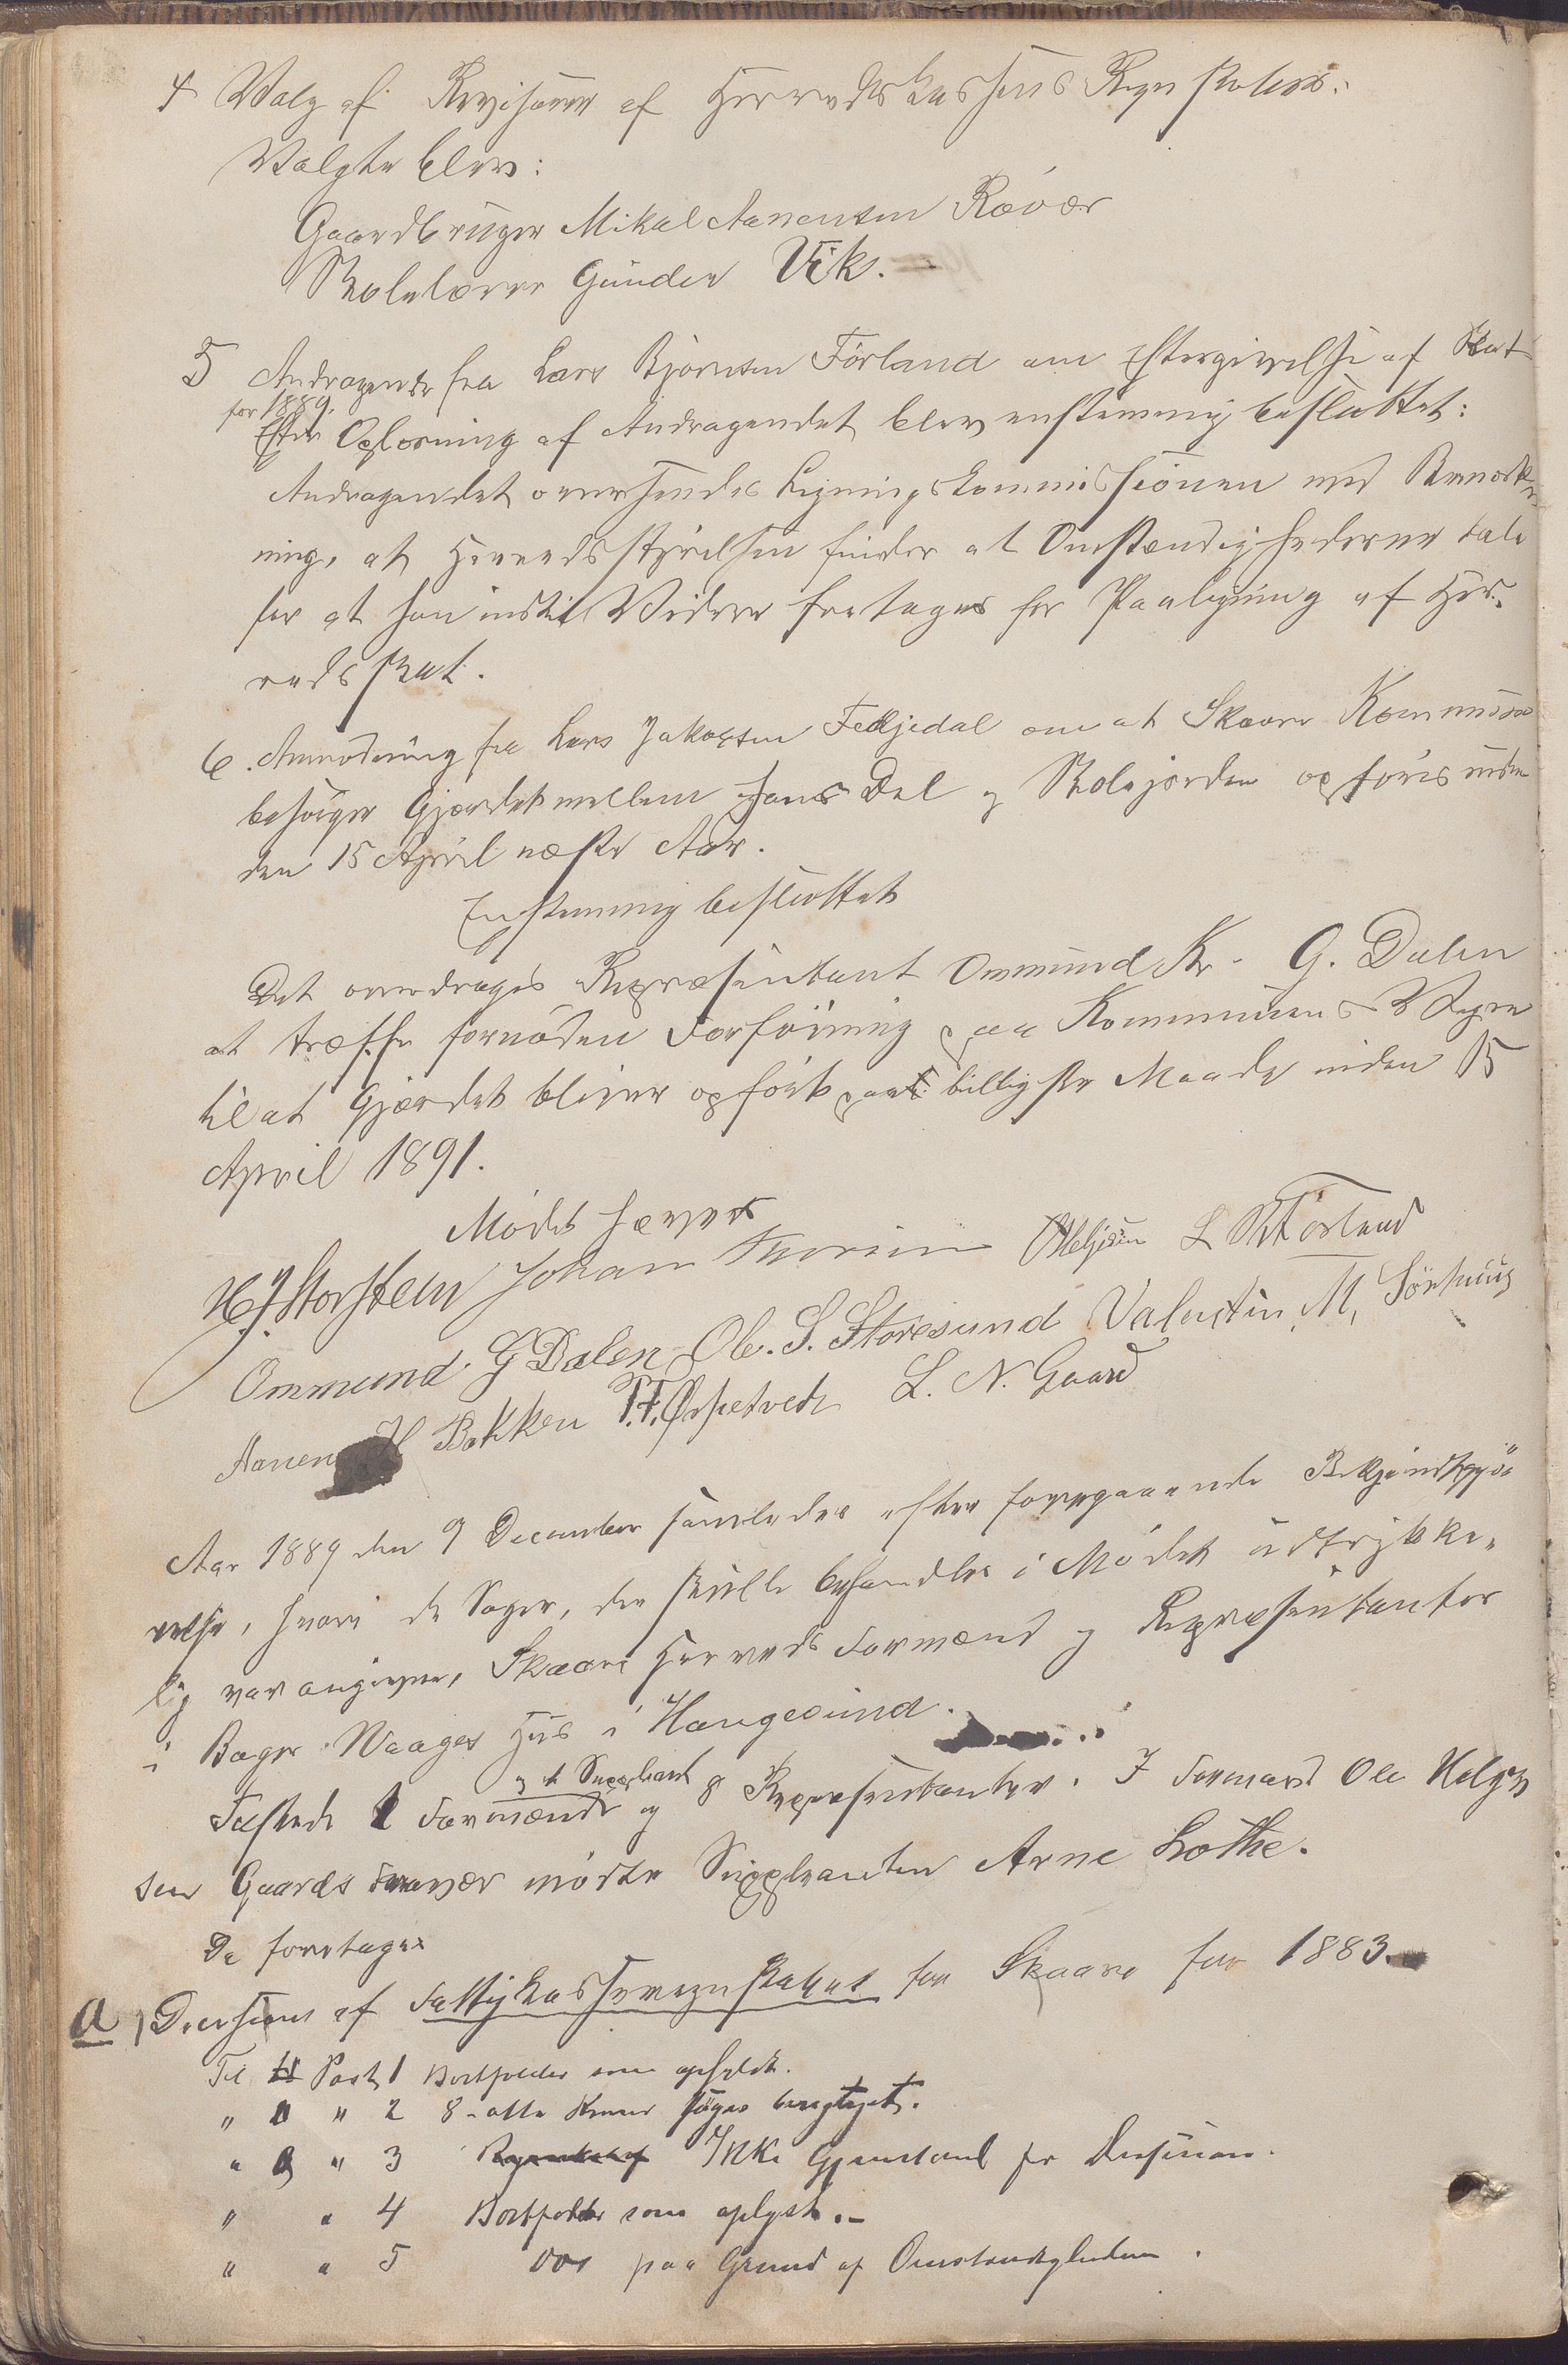 4 Valg af Revisorer af Herredskassens Regnskaber.
Valgte blev:
Gaardbruger Mikal Aanensen Røvær
Skolelærer Gunder Vik.
5 Andragende fra Lars Bjørnsen Förland om Eftergivelse af Skat
for 1889.
Efter Oplæsning af Andragendet blev enstemmig besluttet:
Andragendet oversendes Ligningskommissionen med Bemærk-
ning, at Herredsstyrelsen finder at Omstændighederne tale
for at han indtil Videre fritages for Paaligning af Her-
redsskat.
6. Anmodning fra Lars Jakobsen Fedkjedal om at Skaare Kommune
besörger Gjærdet mellem hans Del og Skolejorden opföres inden
den 15 April næste Aar.
Enstemmig besluttet
Det overdrages Repræsentant Ommund Kr. G. Dalen
at træffe fornöden Forföining paa Kommunens Vegne
til at Gjærdet bliver opfört paa billigste Maade inden 15
April 1891.
Mödet hævet
H J Storstein Johan Thorsen OHelgesen L B Förland
Ommund G Dalen Ole. S. Storesund Valentin M. Sörhuus
Aanen H Bakken T. T. Öspetvedt L. N. Gaard
Aar 1889 den 9 December samledes efter foregaaende Bekjendtgjö-
relse, hvori de Sager, der skulle behandles i Mödet udtrykke-
lig var angivne, Skaare Herreds Formænd og Repræsentanter
i Bager Waages Hus i Haugesund.
og et Suppleant
Tilstede 1 Formænd og 8 Repræsentanter. I Formand Ole Helge-
sen Gaards Fravær mödte Suppleanten Arne Lothe.
De foretages
a) Decision af Fattigkasseregnskabet for Skaare for 1883.
Til Post 1 Bortfalder som opfyldt.
" " 2 8 - otte Kroner söges
" " 3 Ikke Gjenstand for Decision.
" " 4 Bortfalder som oplyst. -
" " 5 Do paa Grund af Omstændighederne.